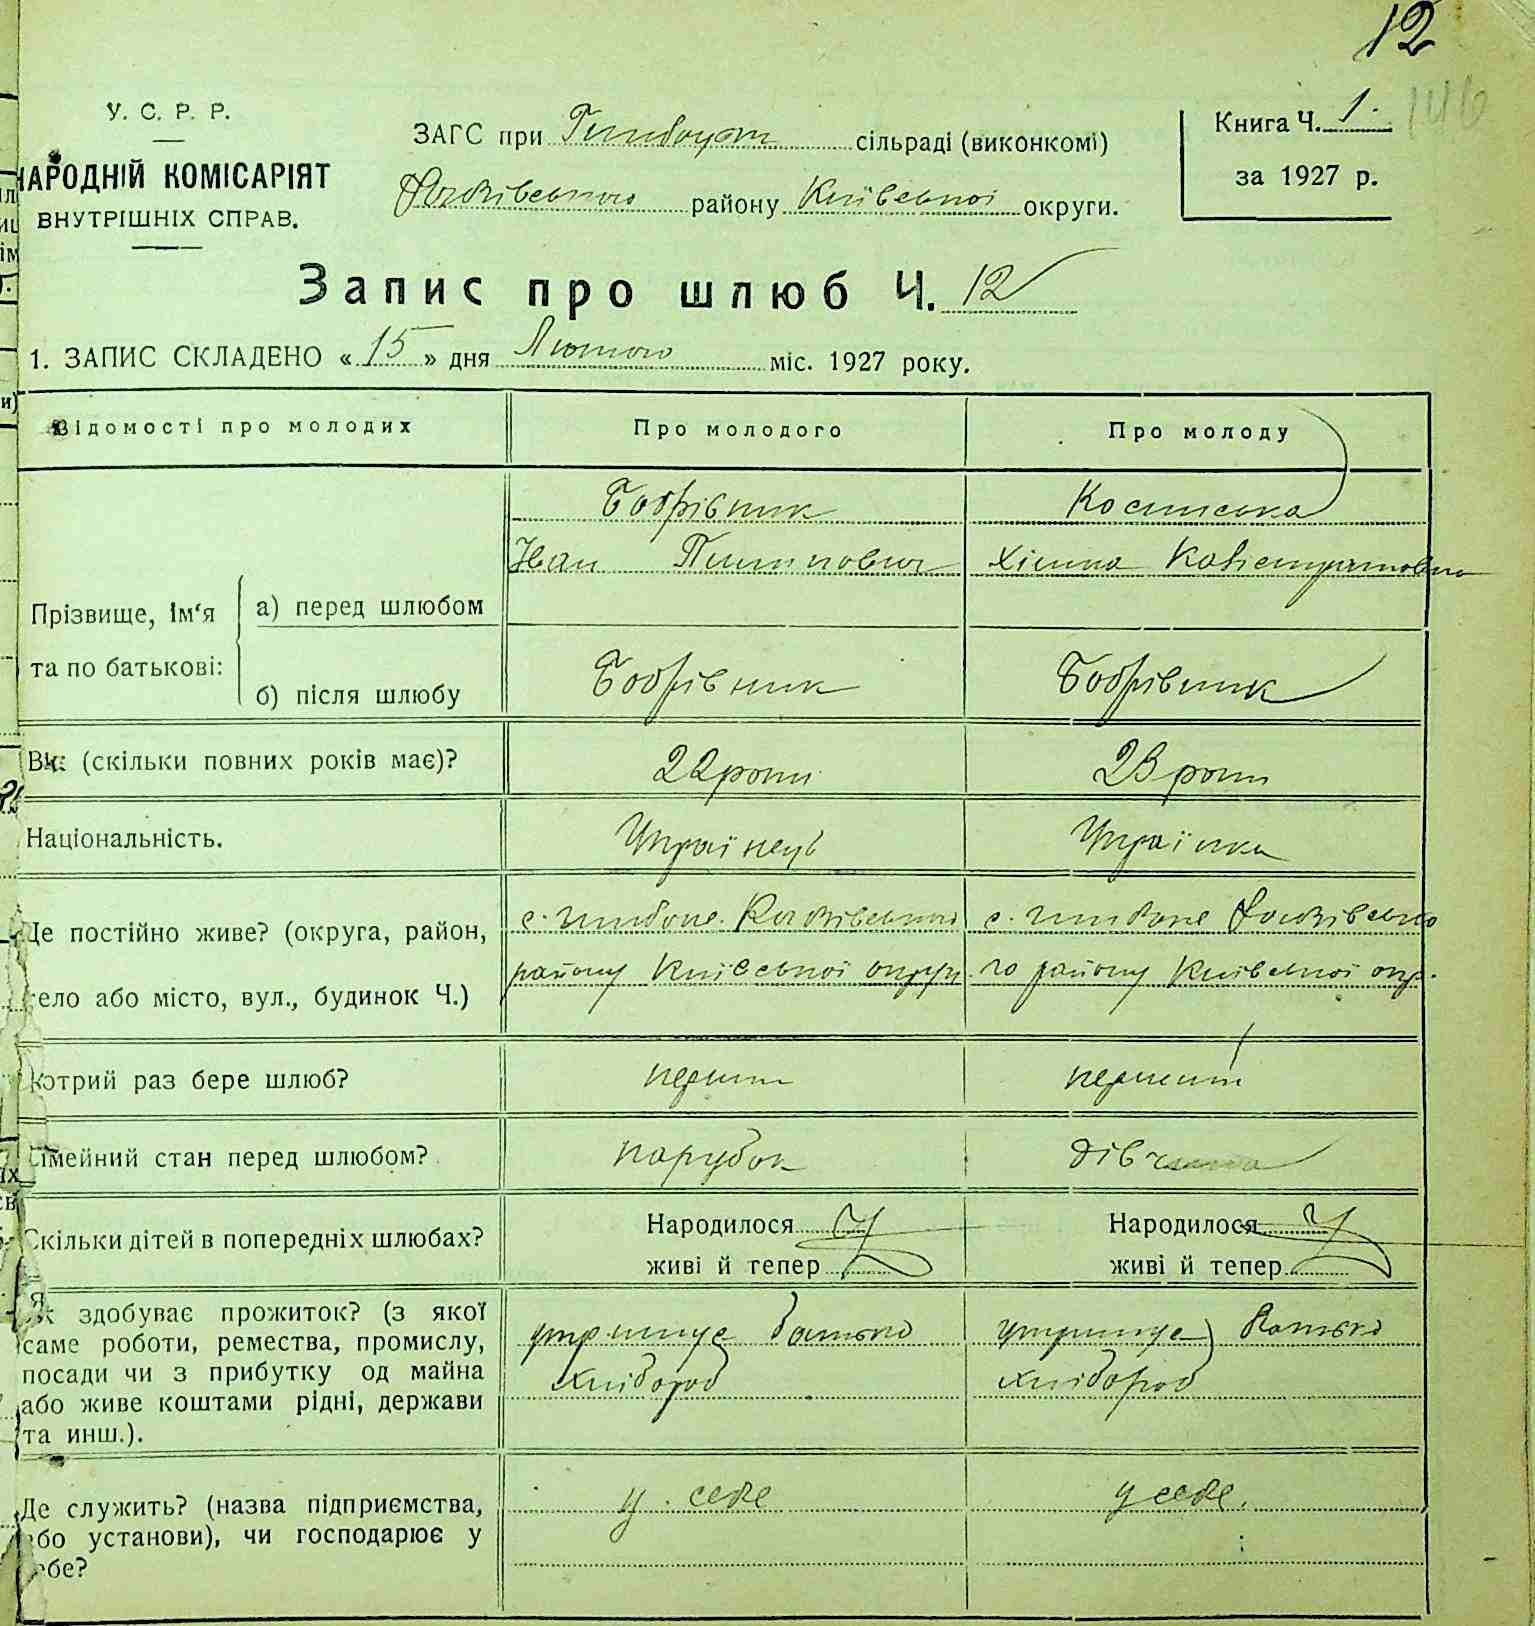 12
146
У. С. Р. Р.
НАРОДНІЙ КОМІСАРІЯТ
ВНУТРІШНІХ СПРАВ.
ЗАГС при сільраді (виконкомі)
району Київської округи.
Книга Ч. 1.
за 1927 р.
Запис про шлюб Ч. 12
1. ЗАПИС СКЛАДЕНО « 15 » дня Лютого міс. 1927 року.
Відомості про молодих
Про молодого
Про молоду
Прізвище, Ім'я
та по батькові:
а) перед шлюбом
Бобрівник
Іван Пилипович
Косинська
Хімка Калістратовна
б) після шлюбу
Бобрівник
Бобрівник
Вік (скільки повних років має)?
22 роки
23 роки
Національність.
Українець
Українка
Де постійно живе? (округа, район,
село або місто, вул., будинок Ч.)
с.
району Київської округи
с.
го району Київської окр.
Котрий раз бере шлюб?
перший
перший
Сімейний стан перед шлюбом?
парубок
дівчина
Скільки дітей в попередніх шлюбах?
Народилося
живі й тепер
Народилося
живі й тепер
Як здобуває прожиток? (з якої
саме роботи, ремества, промислу,
посади чи з прибутку од майна
або живе коштами рідні, держави
та инш.).
утримує батько
хлібороб
утримує батько
хлібороб
Де служить? (назва підприємства,
або установи), чи господарює у
себе?
у себе
у себе.